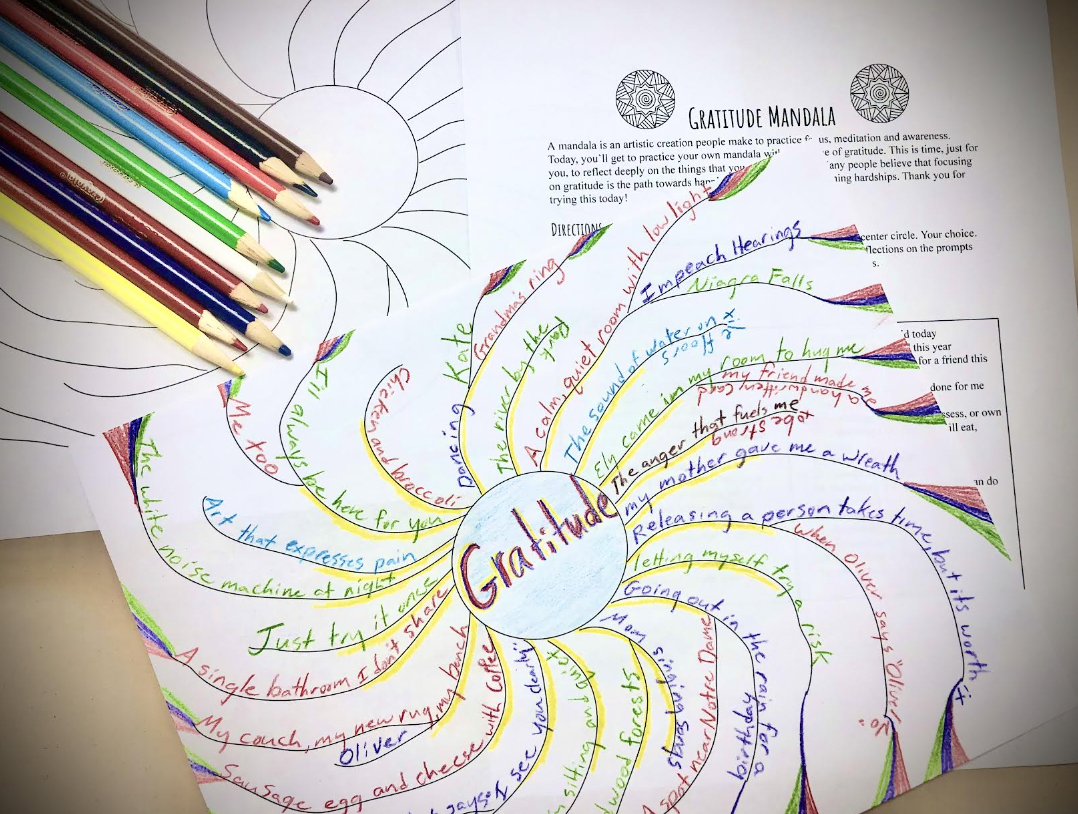 GRATITUDE MANDALA
A mandala is an artistic creation people make to practice us, meditation and awareness.
Today, you'll get to practice your own mandala e of gratitude. This is time, just for
you, to reflect deeply on the things that any people believe that focusing
on gratitude is the path towards ning hardships. Thank you for
trying this today!
DIRECTIONS
center circle. Your choice.
flections on the prompts
s.
d today
this year
for a friend this
done for me
sess, or own
ill eat,
n do
Gratitude
Me too
I'll always be here for you
Chicken and broccoli
Dancing Kate
Grandma's ring
The river by the
A calm, quiet room with low light
Impeach Hearings
Niagra Falls
The sound of water on
floors
Ely come in my room to hug me
my friend made me
a handwritten card
The anger that fuels me
to be strong
my mother gave me a wreath
Releasing a person takes time, but its worth it
When Oliver says "Oliver! No"
letting myself try a risk
Going out in the rain for a
birthday
Mom singing songs
A spot near Notre Dame
forests
sitting and quiet
see you clearly"
Sausage egg and cheese with coffee
Oliver
My couch, my new rug, my bench
A single bathroom I don't share
Just try it once
The white noise machine at night
Art that expresses pain